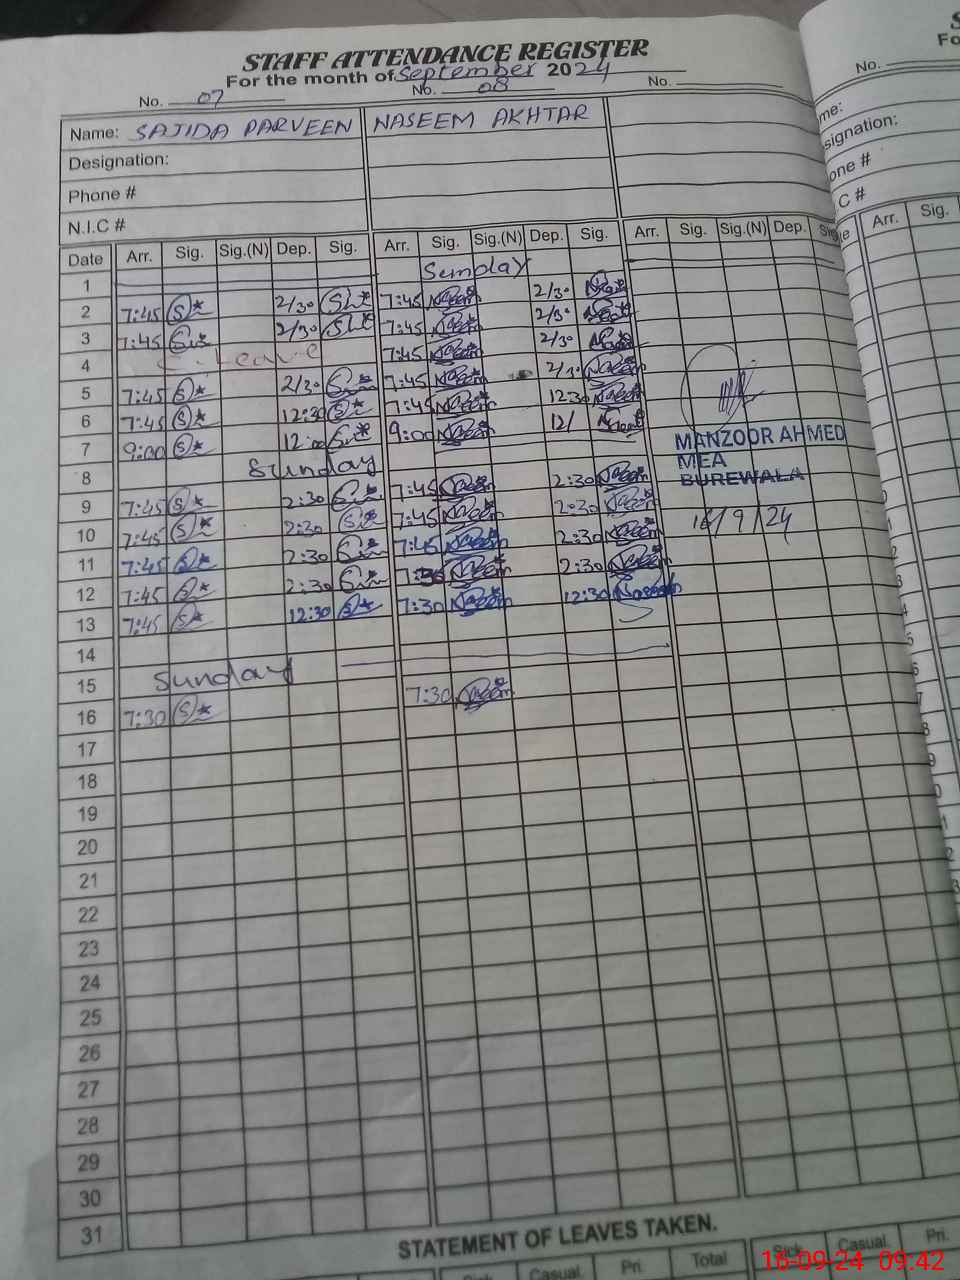 STAFF ATTENDANCE REGISTER
For the month of September 2024
No. 07 No. 08 No.
Name: SAJIDA PARVEEN NASEEM AKHTAR
Designation:
Phone #
N.I.C #
Date Arr. Sig. Sig.(N) Dep. Sig. Arr. Sig. Sig.(N) Dep. Sig. Arr. Sig. Sig.(N) Dep. Sig
1 Sunday
2 7:45 2/30 7:45 2/30
3 7:45 2/30 7:45 2/30
4 Leave 7:45 2/30
5 7:45 2/30 7:45 2/30
6 7:45 12:30 7:45 12:30
7 9:00 12:00 9:00 12/
8 Sunday
9 7:45 2:30 7:45 2:30
10 7:45 2:30 7:45 2:30
11 7:45 2:30 7:45 2:30
12 7:45 2:30 2:30
13 7:45 12:30 7:30 12:30
14
15 Sunday
16 7:30 7:30
17
18
19
20
21
22
23
24
25
26
27
28
29
30
31
MANZOOR AHMED
MEA
BUREWALA
16/9/24
STATEMENT OF LEAVES TAKEN.
Sick Casual Pri. Total Sick Casual Pri.
No.
me:
signation:
one #
C #
Arr. Sig.
16-09-24 09:42